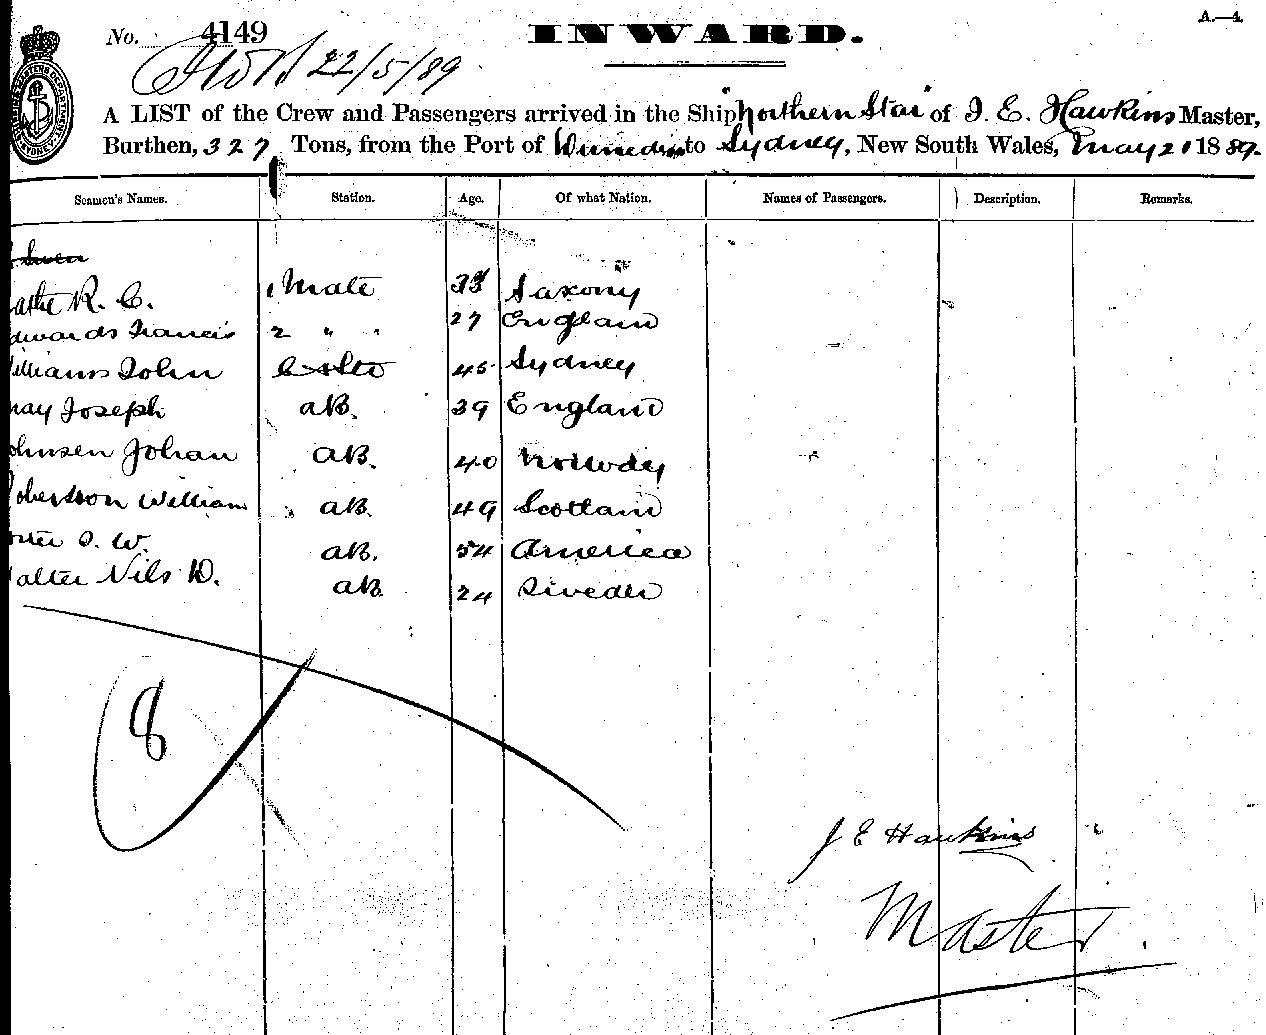 A.—4.
No. 4149
INWARD.
22/5/89
A LIST of the Crew and Passengers arrived in the Ship "Northern Star" of J. E. Hawkins Master,
Burthen, 327 Tons, from the Port of Dunedin to Sydney, New South Wales, May 21 1889.
Seamen's Names. Station. Age. Of what Nation. Names of Passengers. Description. Remarks.
R. C. 1 Mate 33 Saxony
dwards Francis 2 " " 27 England
illiams John 45 Sydney
ray Joseph AB. 39 England
ohnsen Johan AB. 40 Norway
obertson William AB. 49 Scotland
J. W. AB. 54 America
alter Nils D. AB. 24 Sweden
8
J E Hawkins
Master.